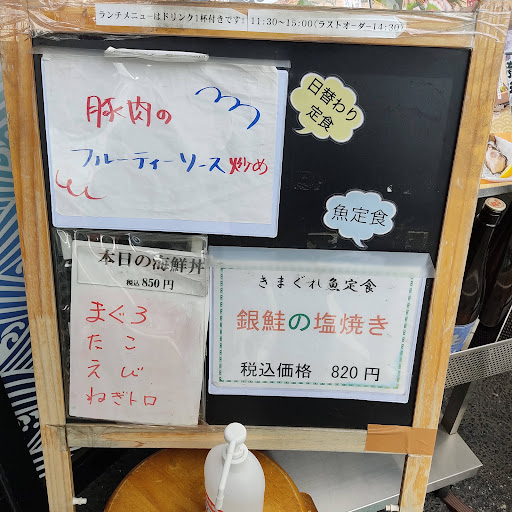 ランチメニューはドリンク1杯付きです! 11:30~15:00(ラストオーダー14:30)
豚肉の
フルーティーソース炒め
日替わり
定食
魚定食
本日の海鮮丼
税込850円
まぐろ
たこ
えび
ねぎトロ
きまぐれ魚定食
銀鮭の塩焼き
税込価格 820円